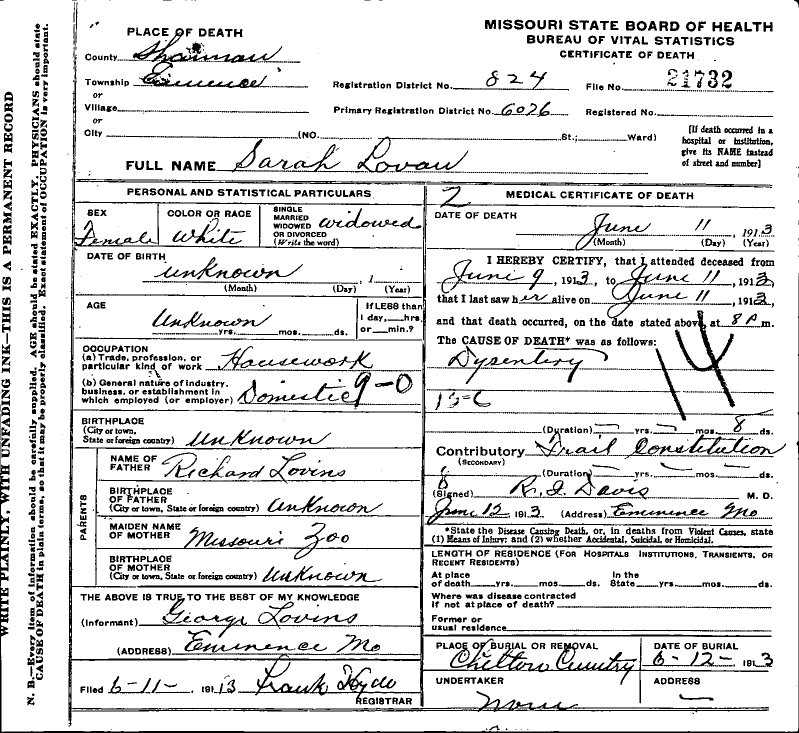 MISSOURI STATE BOARD OF HEALTH
BUREAU OF VITAL STATISTICS
CERTIFICATE OF DEATH
PLACE OF DEATH
County Shannon
Township Eminence
or
Village
or
City (NO. St.; Ward)
Registration District No. 824 File No. 21732
Primary Registration District No. 6026 Registered No.
[If death occurred in a
hospital or institution,
give its NAME instead
of street and number]
FULL NAME Sarah Lovan
PERSONAL AND STATISTICAL PARTICULARS
SEX
Female
COLOR OR RACE
White
SINGLE
MARRIED
WIDOWED
OR DIVORCED
(Write the word)
widowed
DATE OF BIRTH
unknown , 1
(Month) (Day) (Year)
AGE
Unknown
yrs. mos. ds.
If LESS than
1 day, hrs.
or min.?
OCCUPATION
(a) Trade, profession, or
particular kind of work Housework
(b) General nature of industry,
business, or establishment in
which employed (or employer) Domestic 9-0
BIRTHPLACE
(City or town,
State or foreign country) Unknown
PARENTS
NAME OF
FATHER Richard Lovins
BIRTHPLACE
OF FATHER
(City or town, State or foreign country) Unknown
MAIDEN NAME
OF MOTHER Missouri Zoo
BIRTHPLACE
OF MOTHER
(City or town, State or foreign country) Unknown
THE ABOVE IS TRUE TO THE BEST OF MY KNOWLEDGE
(Informant) George Lovins
(ADDRESS) Eminence Mo
Filed 6-11- 1913 Frank Hyde
REGISTRAR
2 MEDICAL CERTIFICATE OF DEATH
DATE OF DEATH
June 11, 1913
(Month) (Day) (Year)
I HEREBY CERTIFY, that I attended deceased from
June 9, 1913, to June 11, 1913,
that I last saw her alive on June 11, 1913,
and that death occurred, on the date stated above, at 8 P m.
The CAUSE OF DEATH* was as follows:
Dysentery
14
(Duration) yrs. mos. 8 ds.
Contributory Frail Constitution
(SECONDARY)
(Duration) yrs. mos. ds.
(Signed) R. I. Davis M. D.
June 12 1913 (Address) Eminence Mo
*State the Disease Causing Death, or, in deaths from Violent Causes, state
(1) Means of Injury; and (2) whether Accidental, Suicidal, or Homicidal.
LENGTH OF RESIDENCE (FOR HOSPITALS INSTITUTIONS, TRANSIENTS, OR
RECENT RESIDENTS)
At place
of death yrs. mos. ds.
In the
State yrs. mos. ds.
Where was disease contracted
if not at place of death?
Former or
usual residence
PLACE OF BURIAL OR REMOVAL
Chilton
DATE OF BURIAL
6-12- 1913
UNDERTAKER
None
ADDRESS
WRITE PLAINLY, WITH UNFADING INK—THIS IS A PERMANENT RECORD
N. B.—Every item of information should be carefully supplied. AGE should be stated EXACTLY. PHYSICIANS should state
CAUSE OF DEATH in plain terms, so that it may be properly classified. Exact statement of OCCUPATION is very important.